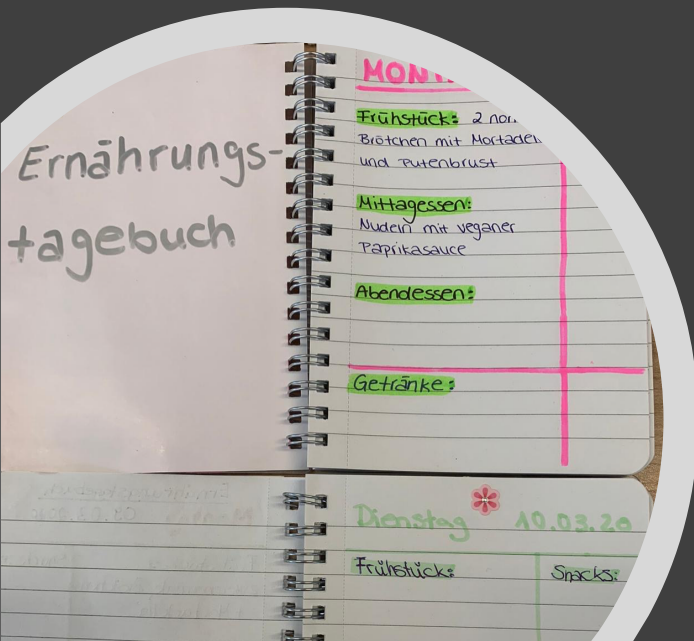 Ernährungs-
tagebuch
Frühstück: 2
Brötchen mit
und Putenbrust
Mittagessen:
Nudeln mit veganer
Paprikasauce
Abendessen:
Getränke:
Dienstag 10.03.20
Frühstück:
Snacks: